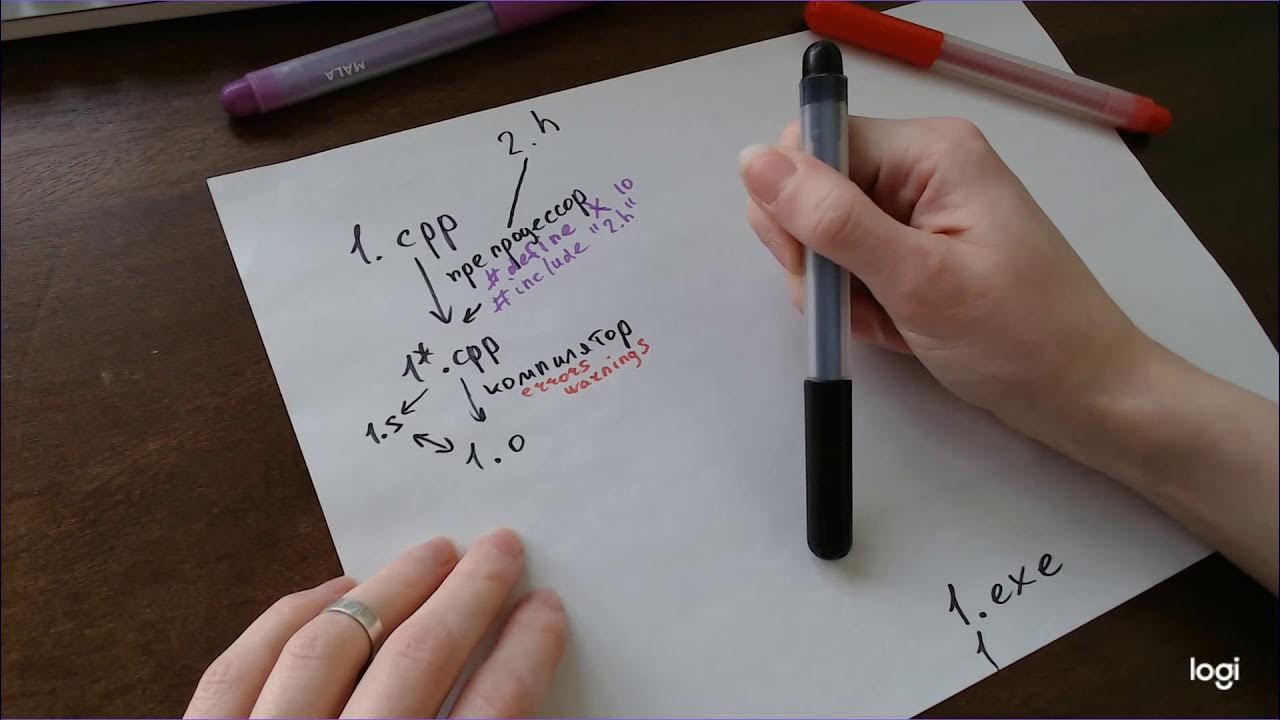 MALA
2.h
1.cpp
препроцессор
#define X 10
#include "2.h"
1*.cpp
компилятор
errors
warnings
1.s
1.o
1.exe
1
logi